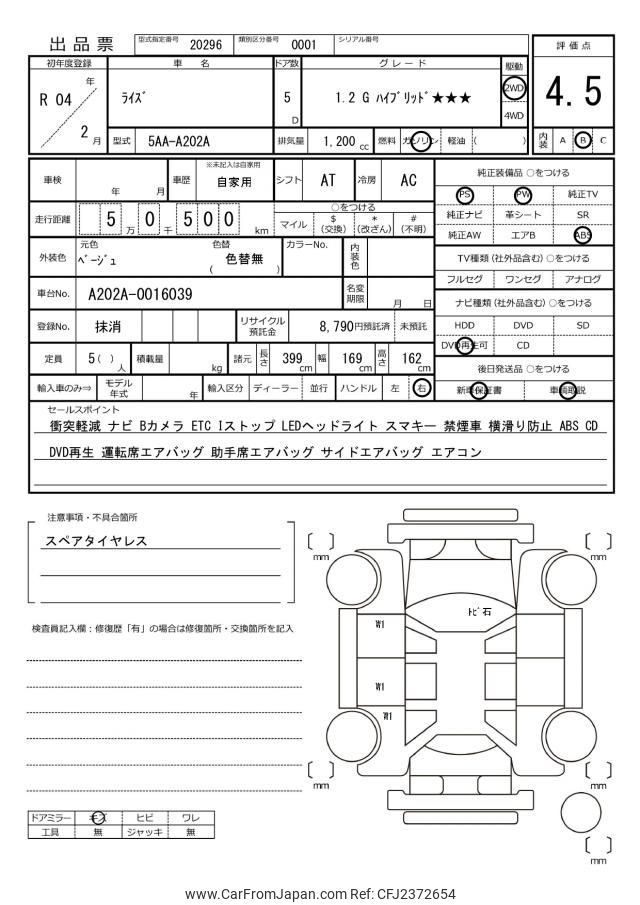 出品票
型式指定番号 20296 類別区分番号 0001 シリアル番号
評価点
4.5
内装 A B C
初年度登録 車名 ドア数 グレード 駆動
R 04 年 2 月
ﾗｲｽﾞ 5 D 1.2 G ﾊｲﾌﾞﾘｯﾄﾞ★★★ 2WD
4WD
型式 5AA-A202A 排気量 1,200 cc 燃料 ガソリン 軽油 ( )
車検 年 月 車歴 ※未記入は自家用 自家用 シフト AT 冷房 AC
走行距離 5 万 0 千 5 0 0 km
○をつける
マイル $(交換) *(改ざん) #(不明)
外装色 元色 ﾍﾞｰｼﾞｭ 色替 ( 色替無 ) カラーNo. 内装色
車台No. A202A-0016039 名変期限 月 日
登録No. 抹消 リサイクル預託金 8,790円預託済 未預託
定員 5( ) 人 積載量 kg 諸元 長さ 399 cm 幅 169 cm 高さ 162 cm
輸入車のみ⇒ モデル年式 年 輸入区分 ディーラー 並行 ハンドル 左 右
純正装備品 ○をつける
PS PW 純正TV
純正ナビ 革シート SR
純正AW エアB ABS
TV種類 (社外品含む) ○をつける
フルセグ ワンセグ アナログ
ナビ種類 (社外品含む) ○をつける
HDD DVD SD
DVD再生可 CD
後日発送品 ○をつける
新車保証書 車輌取説
セールスポイント
衝突軽減 ナビ Bカメラ ETC Iストップ LEDヘッドライト スマキー 禁煙車 横滑り防止 ABS CD
DVD再生 運転席エアバッグ 助手席エアバッグ サイドエアバッグ エアコン
注意事項・不具合箇所
スペアタイヤレス
検査員記入欄：修復歴「有」の場合は修復箇所・交換箇所を記入
〔 〕mm
〔 〕mm
ﾄﾋﾞ石
W1
W1
W1
〔 〕mm
〔 〕mm
〔 〕mm
ドアミラー キズ ヒビ ワレ
工具 無 ジャッキ 無
www.CarFromJapan.com Ref: CFJ2372654